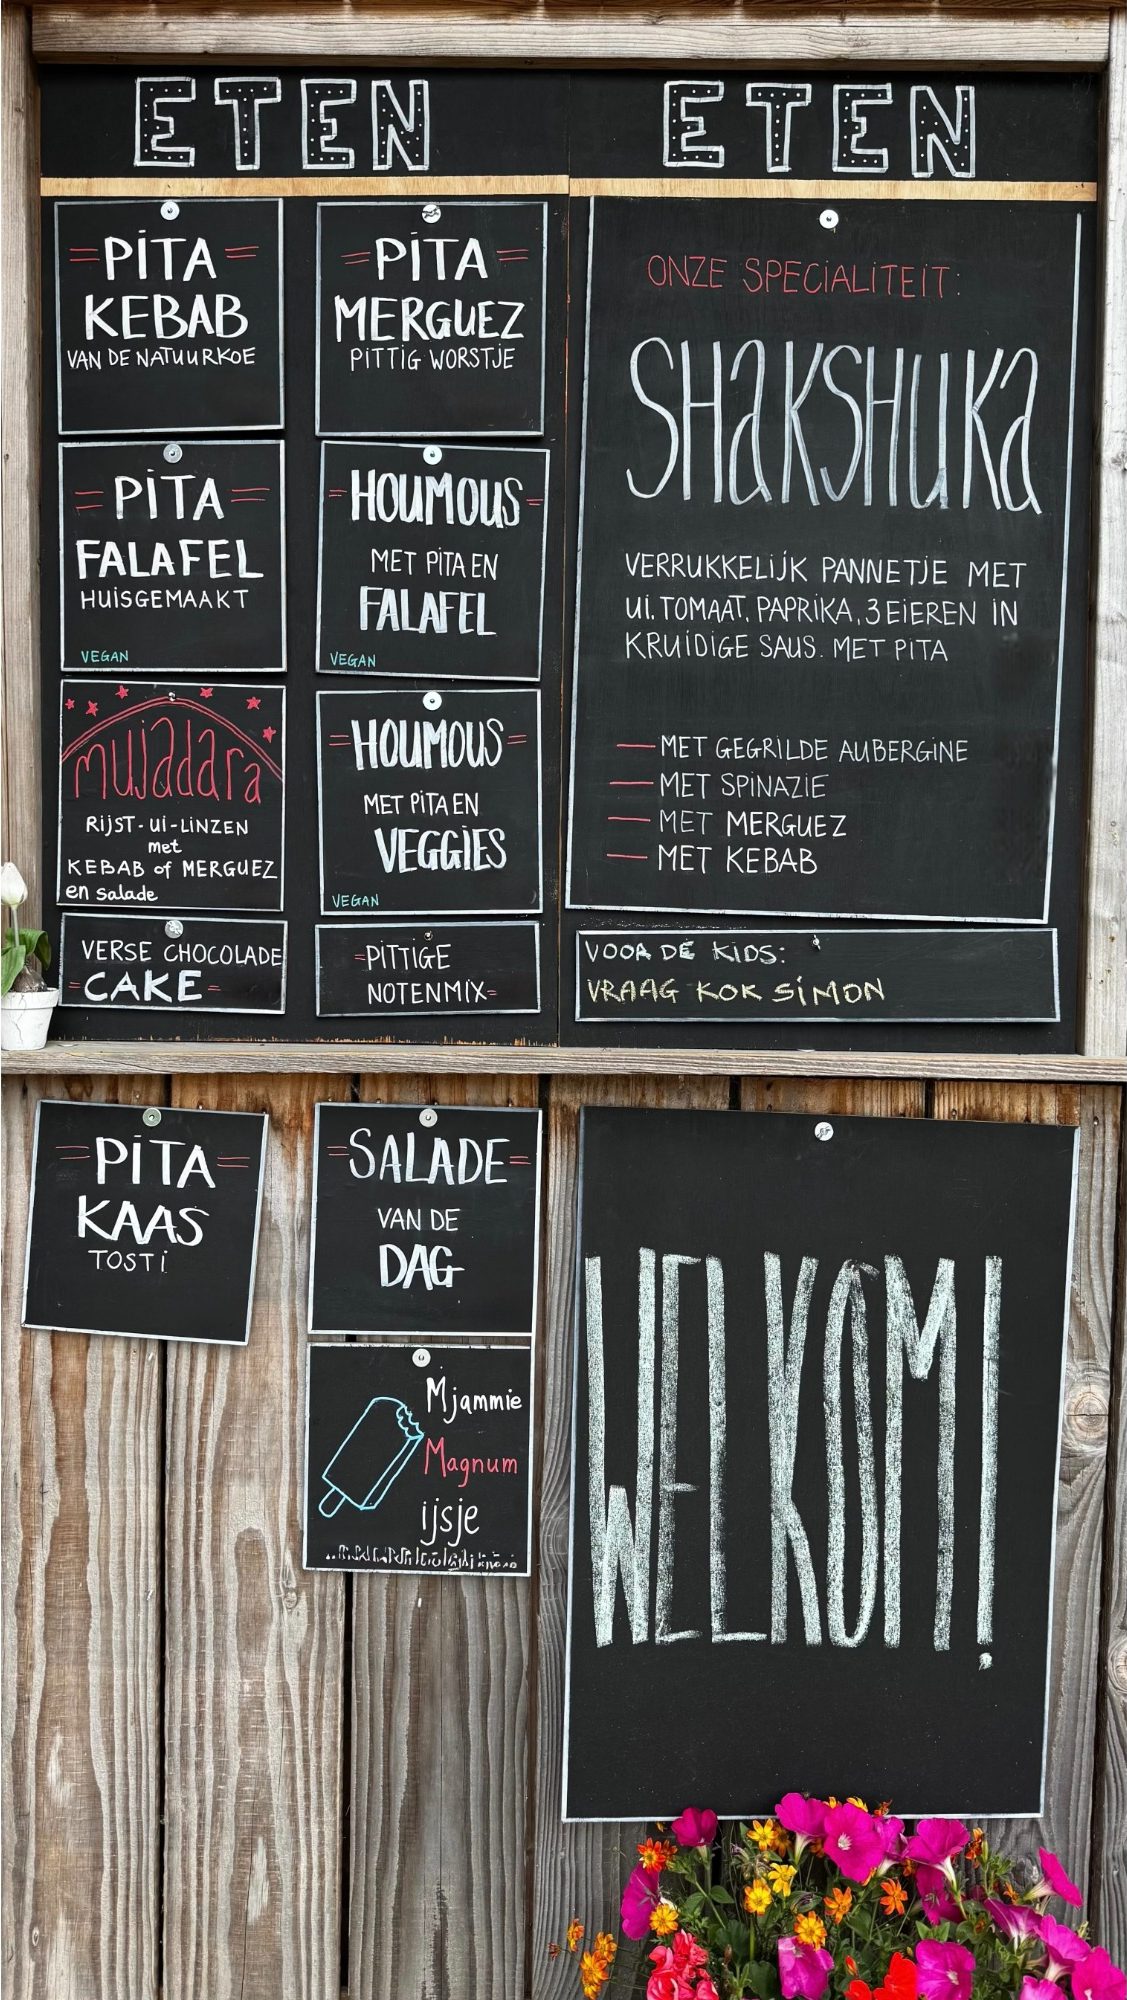 ETEN
=PiTA=
KEBAB
VAN DE NATUURKOE
=PiTA=
MERGUEZ
PiTTiG WORSTJE
=PiTA=
FALAFEL
HUiSGEMAAKT
VEGAN
=HOUMOUS=
MET PiTA EN
FALAFEL
VEGAN
mujadara
RiJST-Ui-LiNZEN
met
KEBAB of MERGUEZ
en salade
=HOUMOUS=
MET PiTA EN
VEGGiES
VEGAN
VERSE CHOCOLADE
=CAKE=
=PiTTiGE
NOTENMiX=
ETEN
ONZE SPECiALiTEiT:
SHaKSHuKa
VERRUKKELiJK PANNETJE MET
Ui. TOMAAT, PAPRiKA, 3 EiEREN iN
KRUiDiGE SAUS. MET PiTA
— MET GEGRiLDE AUBERGiNE
— MET SPiNAZiE
— MET MERGUEZ
— MET KEBAB
VOOR DE KiDS:
VRAAG KOK SiMON
=PiTA=
KAAS
TOSTi
=SALADE=
VAN DE
DAG
Mjammie
Magnum
ijsje
WELKOM!